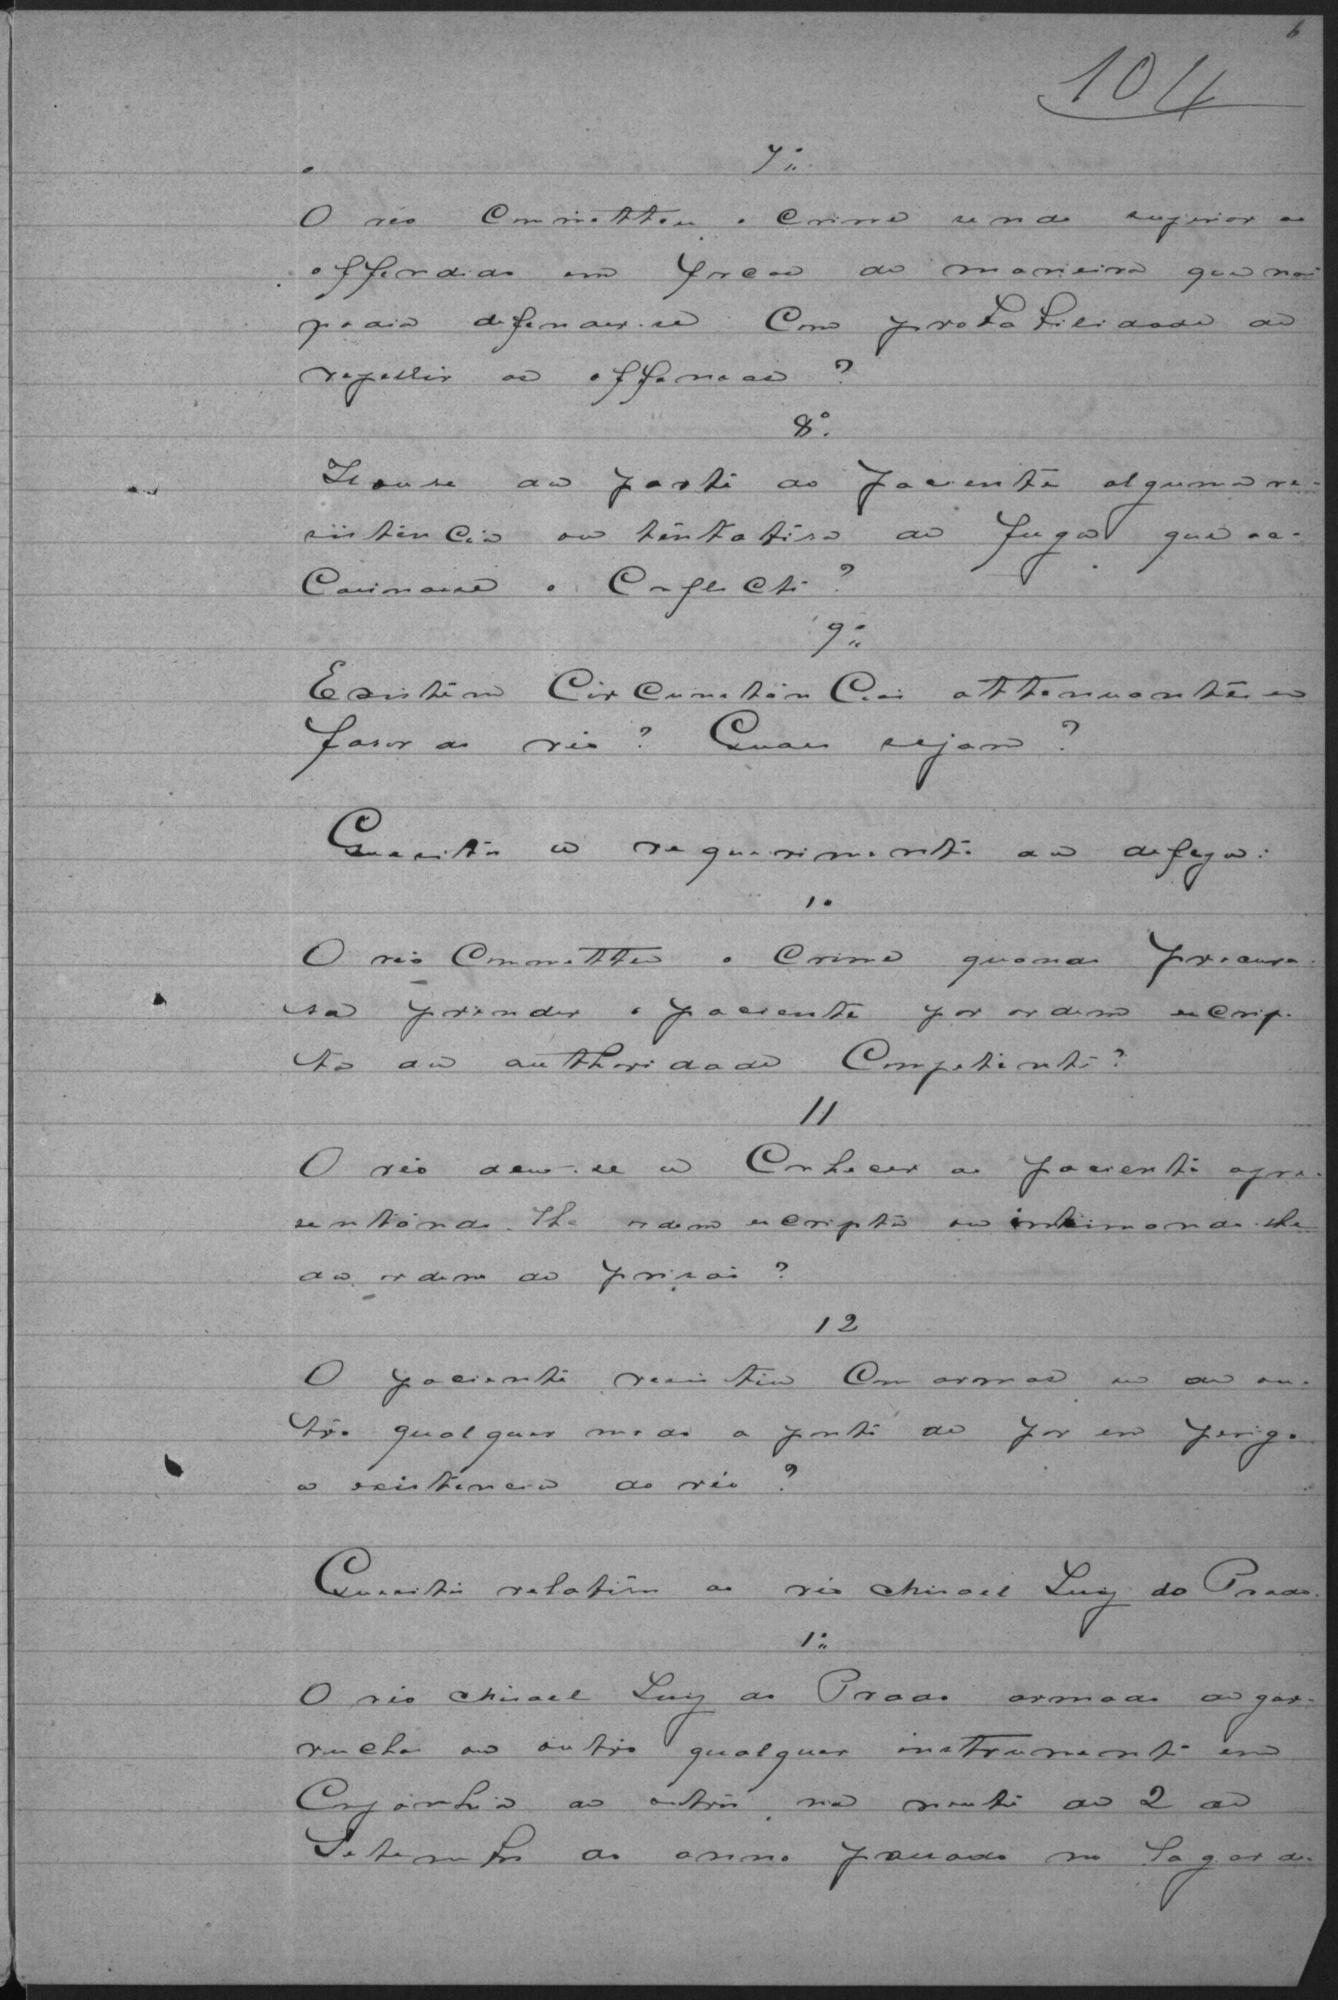 6
104
7º
O reo Committeu o Crime sendo superior ao
offendido em forças de maneira que não
podia defender-se Com probabilidade de
repellir as offensas?
8º
Houve da parte do paciente alguma re-
sistencia ou tentativa de fuga que oc-
Casionasse o Conflicto?
9º
Existem Circunstan Cias attenuantes em
favor do reo? Quaes sejam?
Quesitos a requerimento da defeza:
10
O reo Committeu o Crime quando procura-
va prender o paciente por ordem escrip-
ta da authoridade Competente?
11
O reo deu-se a Conhecer ao paciente apre-
sentando-lhe ordem escripta ou intimando-lhe
da ordem de prisão?
12
O paciente resistiu Com armas ou de ou-
tro qualquer modo a ponto de por em perigo
a existencia do reo?
Quesitos relativos ao reo Misael Luiz do Prado.
1º
O reo Misael Luiz do Prado armado de gar-
rucha ou outro qualquer instrumento em
Companhia de outros, na noute de 2 de
Setembro do anno passado no lugar do